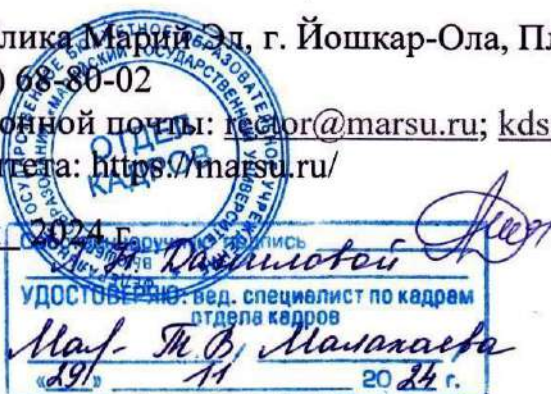 лика Марий Эл, г. Йошкар-Ола, Пл
) 68-80-02
онной почты: rector@marsu.ru; kds
тета: https://marsu.ru/
2024 г.
ОТДЕЛ
КАДРОВ
подпись
Даниловой
УДОСТОВЕРЯЮ: вед. специалист по кадрам
отдела кадров
Т.В. Малахаева
«29» 11 2024 г.